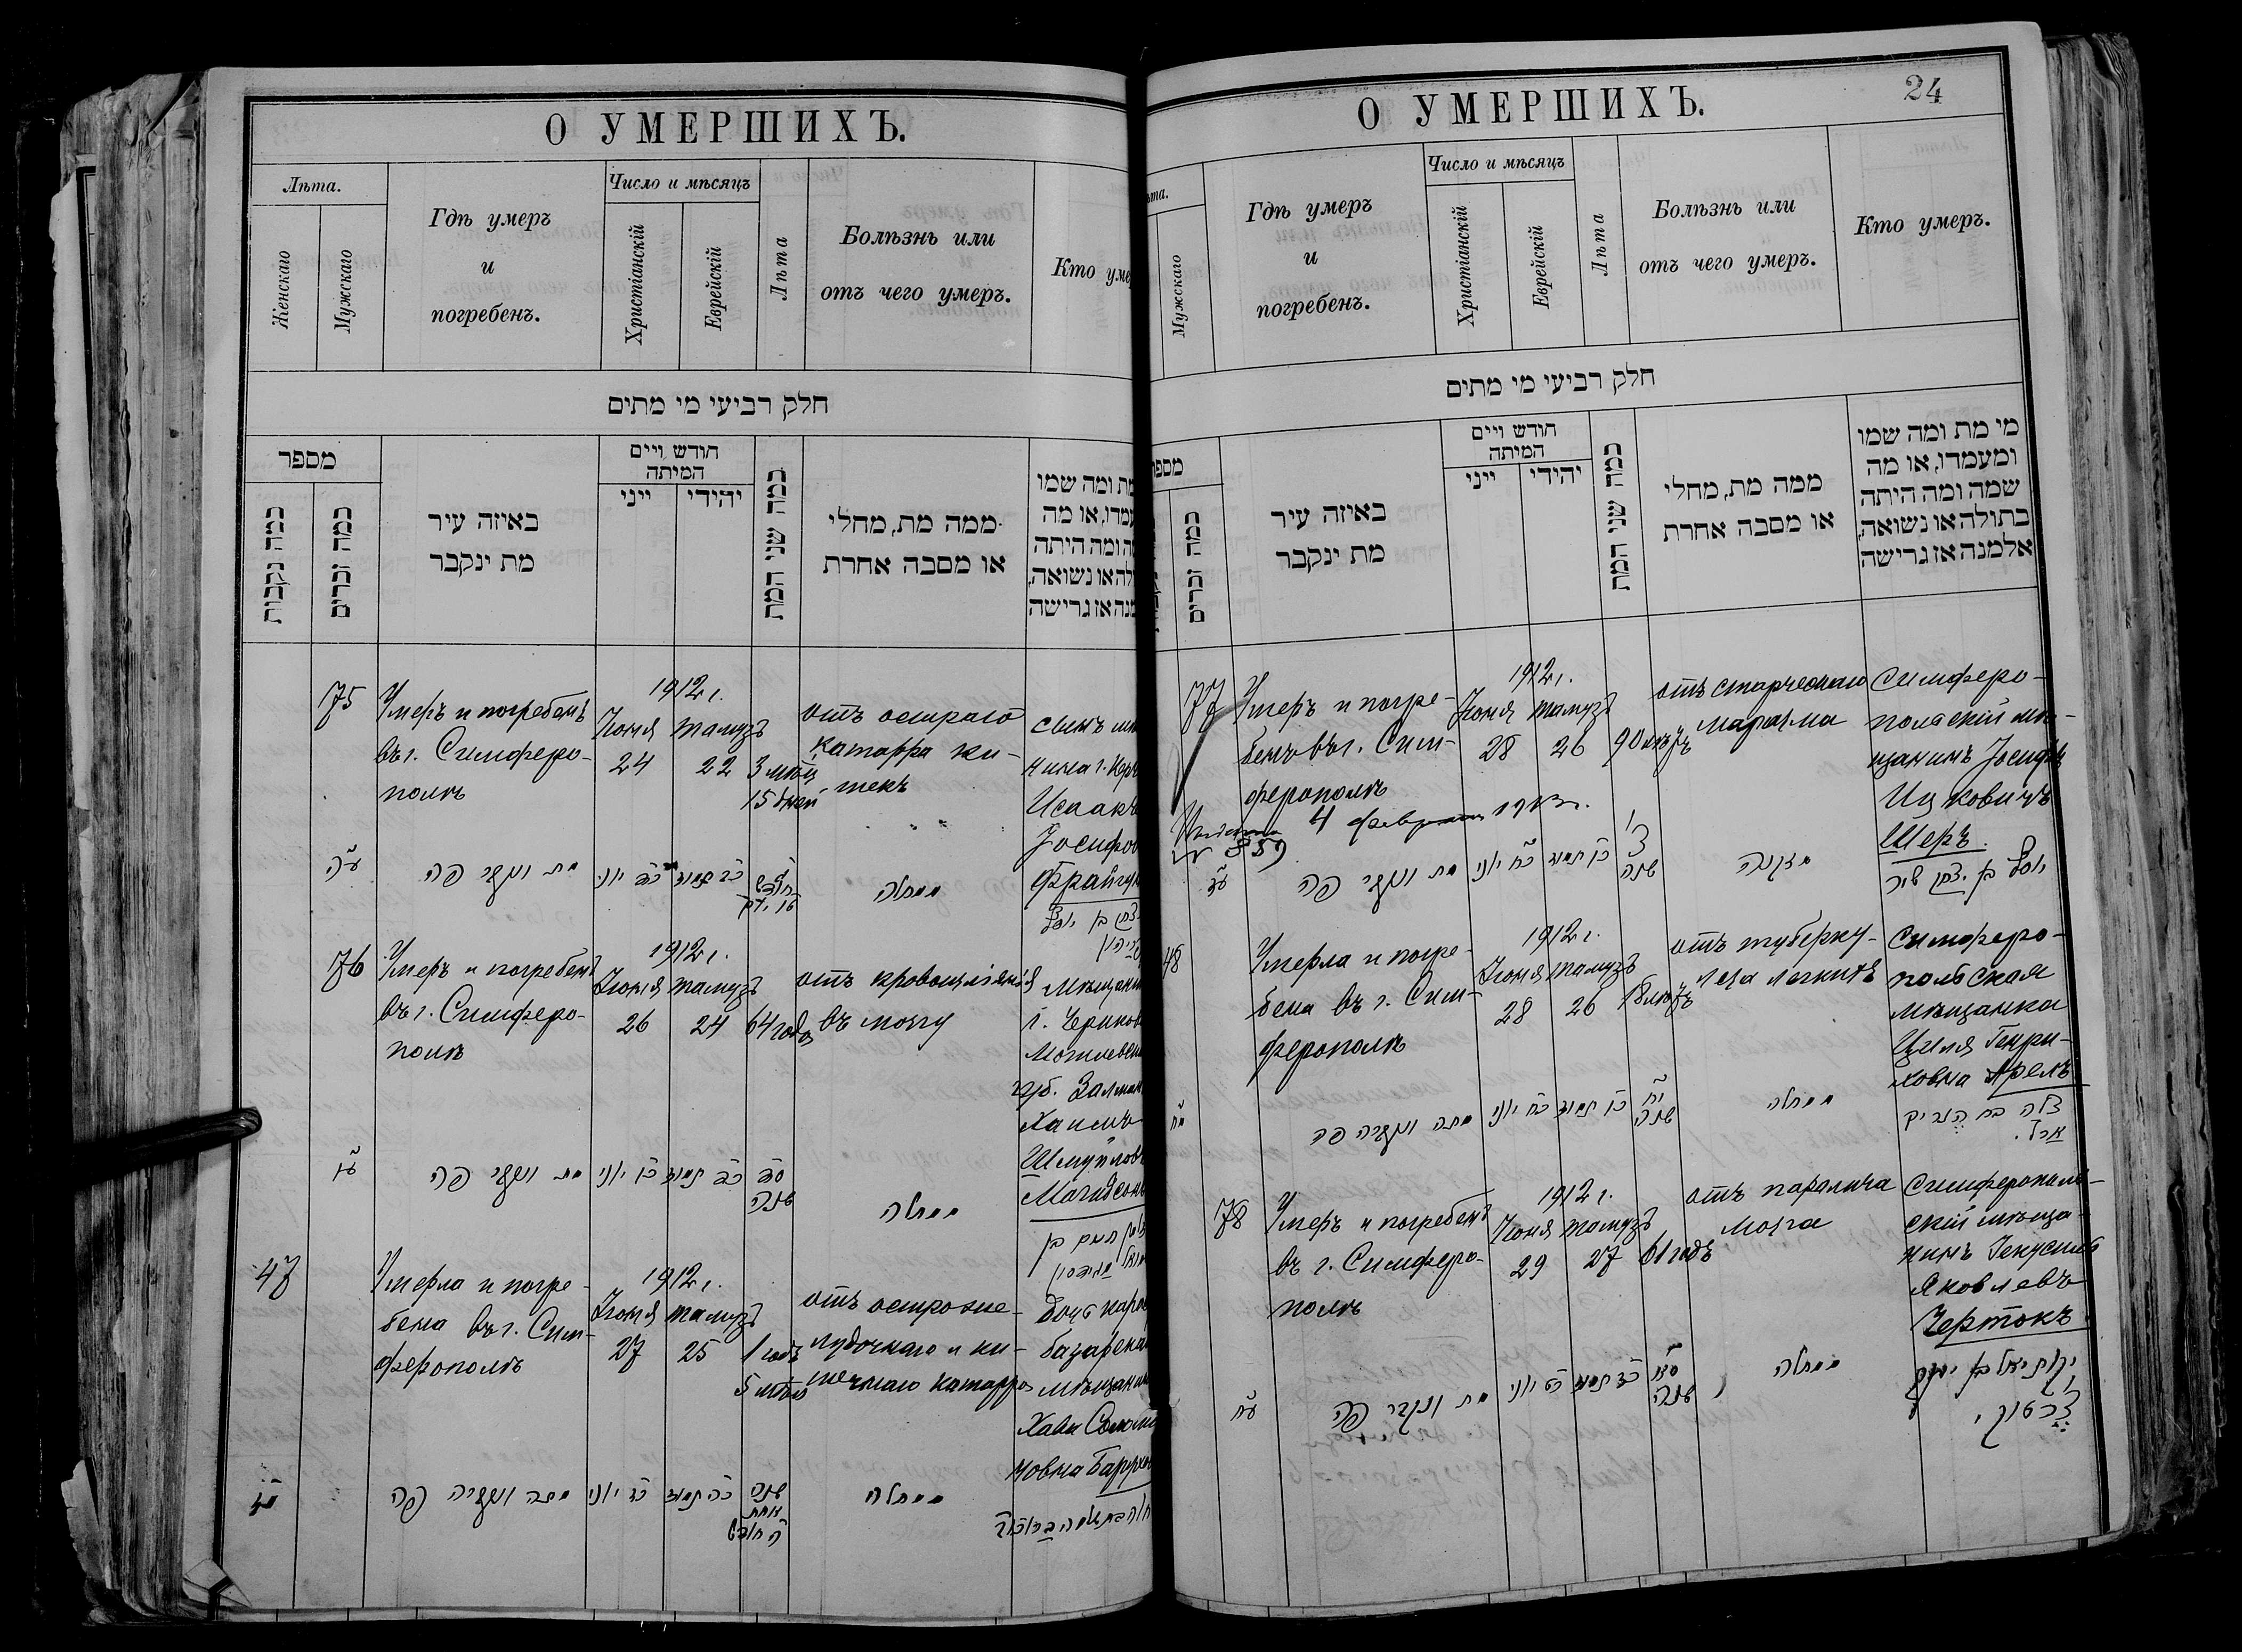 О УМЕРШИХЪ.
Лѣта.
Женскаго
Мужскаго
Гдѣ умеръ
и
погребенъ.
Число и мѣсяцъ
Христіанскій
Еврейскій
Лѣта
Болѣзнь или
отъ чего умеръ.
Кто уме
חלק רביעי מי מתים
מספר
כמה נקבות
כמה זכרים
באיזה עיר
מת ינקבר
חודש ויים
המיתה
ייני
יהידי
כמה שני המת
ממה מת, מחלי
או מסבה אחרת
מת ומה שמו
עמדו, או מה
ה ומה היתה
לה או נשואה,
מנה אז גרישה
75
Умеръ и погребенъ
въ г. Симферо-
полѣ
1912 г.
Іюня
24
Тамузъ
22
3 мѣсц
15 дней
отъ остраго
катарра ки-
шекъ
сынъ
Исаакъ
Іосифов
עה
מת ונקבר פה
כד יוני
כב תמוז
ממחלה
76
Умеръ и погребенъ
въ г. Симферо-
полѣ
1912 г.
Іюня
26
Тамузъ
24
64 года
отъ кровоизліянія
въ мозгу
мѣщанин
г. Чериков
Могилевск
губ. Залман
Хаимъ
Шмуйлов
Магидсонъ
עו
מת ונקבר פה
כו יוני
כד תמוז
סד
שנה
ממחלה
47
Умерла и погре-
бена въ г. Сим-
ферополѣ
1912 г.
Іюня
27
Тамузъ
25
1 годъ
5 мѣсц
отъ остро же-
лудочнаго и ки-
шечнаго катарра
дочь карас
базарскаг
мѣщанин
Хава Соломо
новна Барух
מז
מתה ונקברה פה
כז יוני
כה תמוז
שנה
אחת
ה חודש
ממחלה
24
О УМЕРШИХЪ.
ѣта.
Мужскаго
Гдѣ умеръ
и
погребенъ.
Число и мѣсяцъ
Христіанскій
Еврейскій
Лѣта
Болѣзнь или
отъ чего умеръ.
Кто умеръ.
חלק רביעי מי מתים
מספ
כמה זכרים
באיזה עיר
מת ינקבר
חודש ויים
המיתה
ייני
יהידי
כמה שני המת
ממה מת, מחלי
או מסבה אחרת
מי מת ומה שמו
ומעמדו, או מה
שמה ומה היתה
בתולה או נשואה,
אלמנה אז גרישה
77
Умеръ и погре-
бенъ въ г. Сим-
ферополѣ
1912 г.
Іюня
28
Тамузъ
26
90 лѣтъ
отъ старческаго
маразма
Симферо-
польскій мѣ-
щанинъ Іосифъ
Ицковичъ
Шеръ
4 февраля 1913 г.
№ 859
עז
מת ונקבר פה
כח יוני
כו תמוז
צ׳
שנה
מזקנה
יוסף בן יצחק שור
48
Умерла и погре-
бена въ г. Сим-
ферополѣ
1912 г.
Іюня
28
Тамузъ
26
18 лѣтъ
отъ туберку-
леза легкихъ
Симферо-
польская
мѣщанка
Циля Генри-
ховна Арель
מח
מתה ונקברה פה
כח יוני
כו תמוז
יח
שנה
ממחלה
צלה בת הנריק
78
Умеръ и погребенъ
въ г. Симферо-
полѣ
1912 г.
Іюня
29
Тамузъ
27
61 годъ
отъ паралича
мозга
Симферополь-
скій мѣща-
нинъ Іекусіилъ
Яковлевъ
Чертокъ
עח
מת ונקבר פה
כט יוני
כז תמוז
סא
שנה
ממחלה
יקותיאל בן יעקב
צרטוק